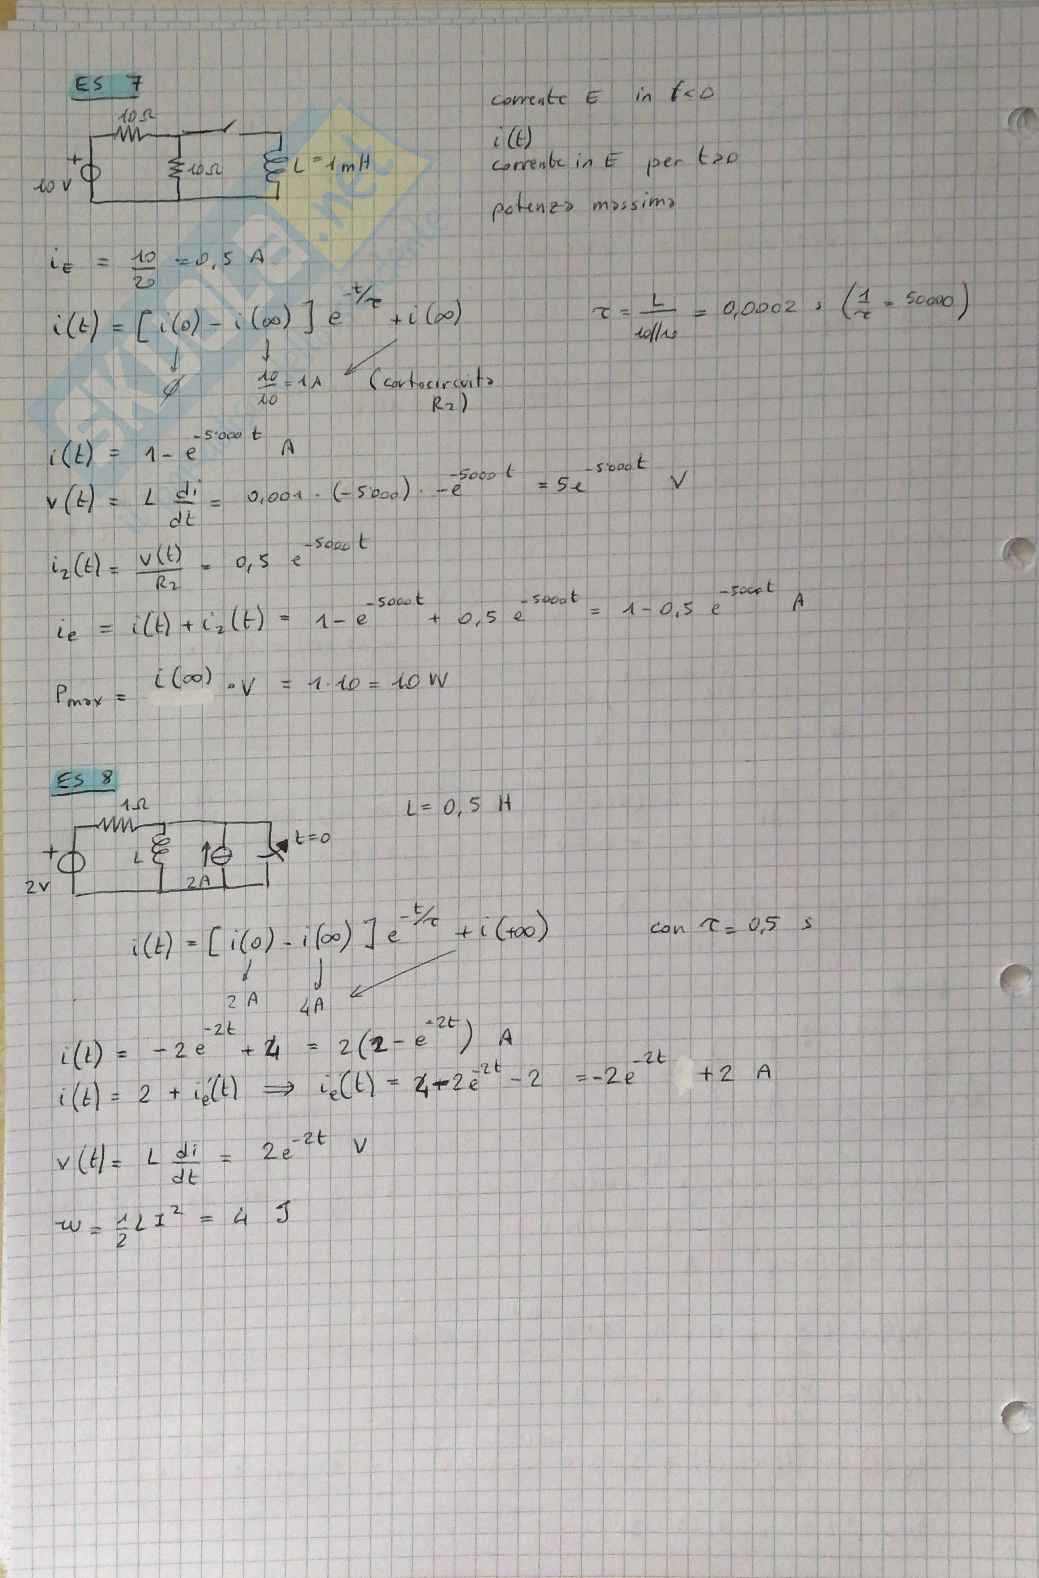 ES 7
10Ω
10Ω
10 V
+
L = 1mH
corrente E in t<0
i(t)
corrente in E per t>0
potenza massima
iE = 10/20 = 0,5 A
i(t) = [i(0) - i(∞)] e^-t/τ + i(∞)
τ = L/10//10 = 0,0002 s (1/τ = 50000)
ϕ
10/10 = 1A
(cortocircuito
R2)
i(t) = 1 - e^-5000t A
v(t) = L di/dt = 0,001 · (-5000) · -e^-5000t = 5e^-5000t V
i2(t) = v(t)/R2 = 0,5 e^-5000t
ie = i(t) + i2(t) = 1 - e^-5000t + 0,5 e^-5000t = 1 - 0,5 e^-5000t A
Pmax = i(∞) · V = 1·10 = 10 W
ES 8
1Ω
L = 0,5 H
+
2V
L
2A
t=0
i(t) = [i(0) - i(∞)] e^-t/τ + i(+∞)
con τ = 0,5 s
2 A
4A
i(t) = -2e^-2t + 4 = 2(2 - e^-2t) A
i(t) = 2 + ie(t) ⇒ ie(t) = 4 - 2e^-2t - 2 = -2e^-2t + 2 A
v(t) = L di/dt = 2e^-2t V
w = 1/2 L I² = 4 J
SKUOLA.net